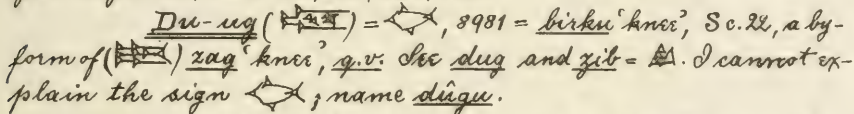 Du-ug () = , 8981 = birku ‘knee’, Sc. 22, a by-
form of () zag ‘knee’, q.v. See dug and zib = . I cannot ex-
plain the sign ; name dûgu.